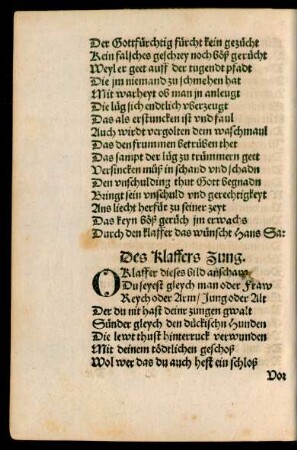 Der Gottfürchtig fürcht kein gezücht
Kein falsches geschrey noch böß gerücht
Weyl er geet auff der tugendt pfadt
Die jm niemand zu schmehen hat
Mit warheyt ob man jn anleugt
Die lüg sich endtlich vberzeugt
Das als erstuncken ist vnd faul
Auch wirdt vergolten dem waschmaul
Das den frummen betrüben thet
Das sampt der lüg zu trümmern geet
Versincken müß in schand vnd schadn
Den vnschulding thut Gott begnadn
Bringt sein vnschuld vnd gerechtigkeyt
Ans liecht herfür zu seiner zeyt
Das keyn böß gerüch jm erwachs
Durch den klaffer das wünscht Hans Sax
Des Klaffers Zung.
O Klaffer dieses bild anschaw
Du seyest gleych man oder Fraw
Reych oder Arm / Jung oder Alt
Der du nit hast deinr zungen gwalt
Sünder gleych den dückischn Hunden
Die lewt thust hinterruck verwunden
Mit deinem tödtlichen geschoß
Wol wer das du auch hest ein schloß
Vor